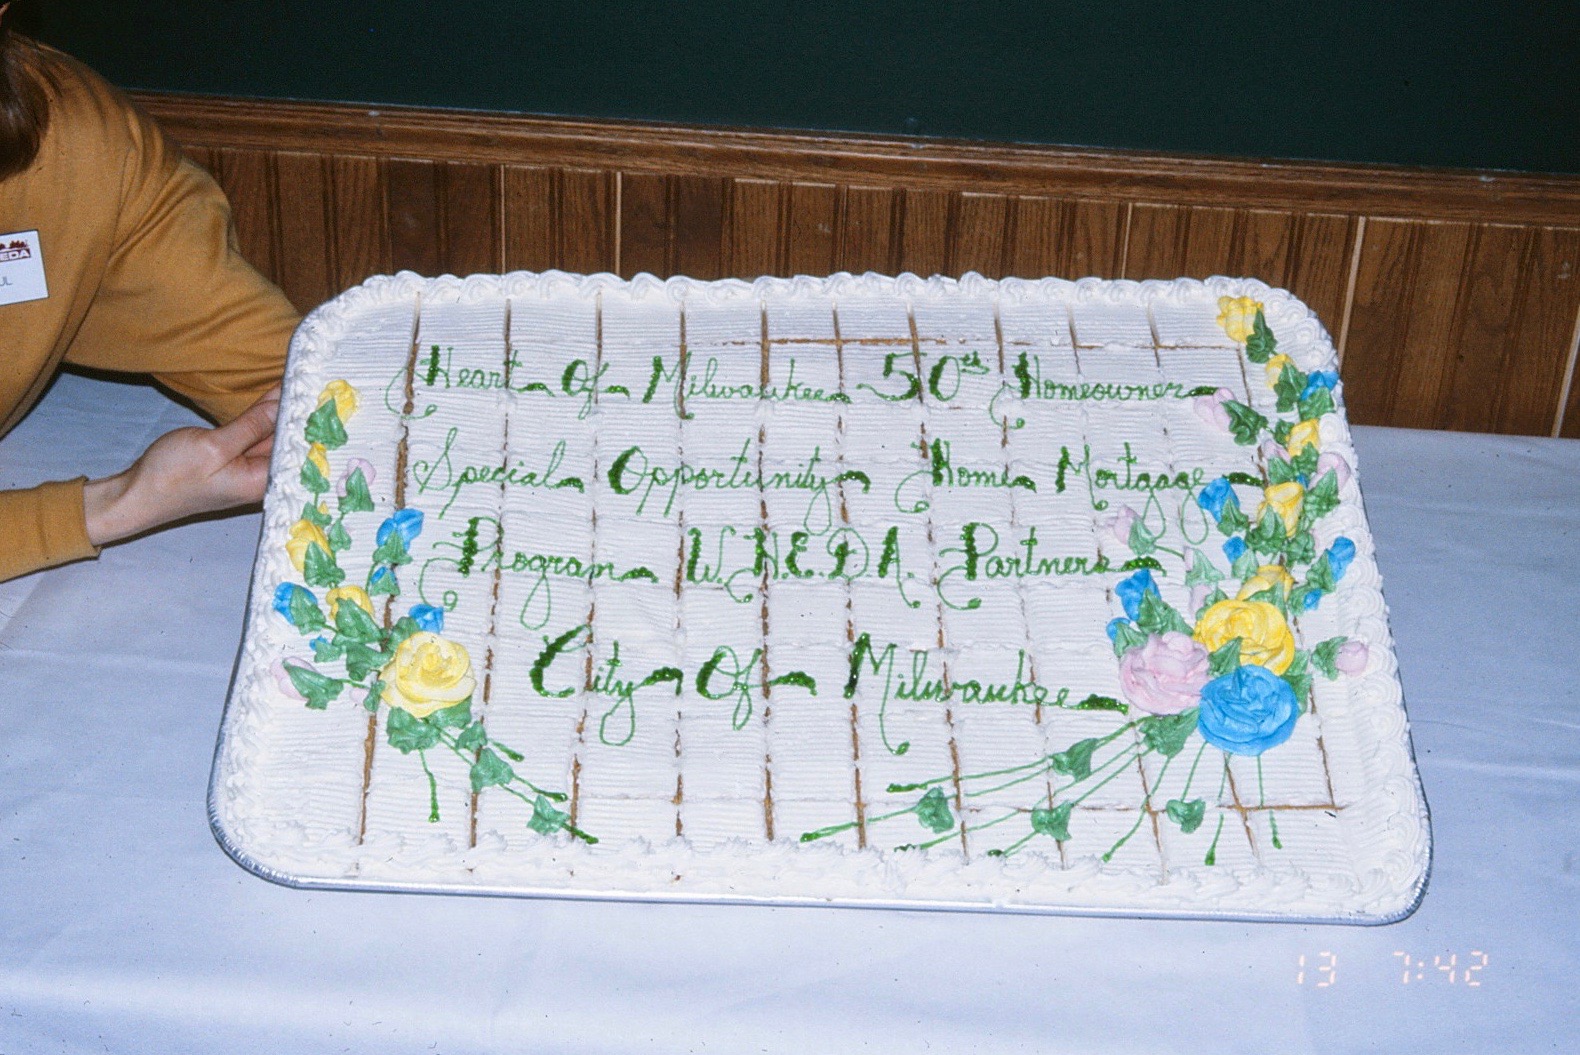 Heart Of Milwaukee 50th Homeowner
Special Opportunity Home Mortgage
Program W.H.E.D.A. Partners
City Of Milwaukee
EDA
UL
13 7:42